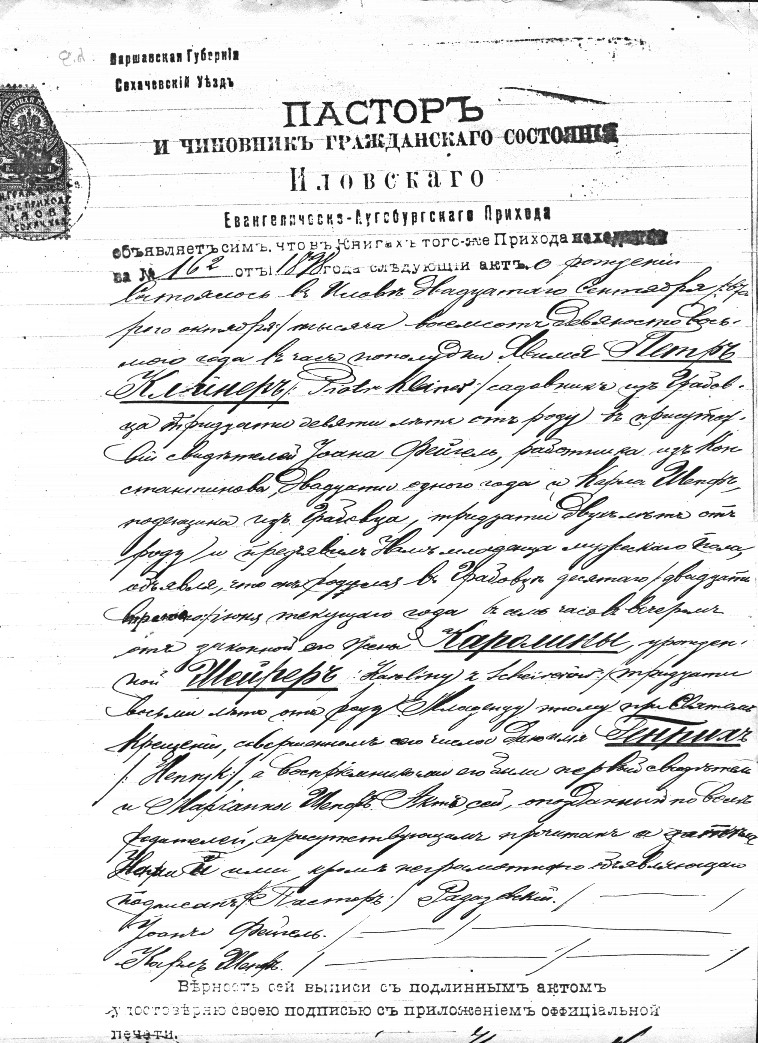 Варшавская Губернія
Сохачевскій Уѣздъ
ПАСТОРЪ
И ЧИНОВНИКЪ ГРАЖДАНСКАГО СОСТОЯНІЯ
Иловскаго
Евангелическо-Аугсбургскаго Прихода
объявляетъ симъ, что въ книгахъ того-же Прихода
на № 162 отъ 1898 года слѣдующій актъ. о рожденіи
Состоялось в Иловѣ Двадцатаго Сентября /вто
рого октября/ тысяча восемсотъ девяносто вось-
мого года в часъ пополудни Явился Петръ
Клейнеръ /: Piotr Kleiner :/ садовникъ изъ Грабов-
ца тридцати девяти лѣтъ отъ роду в присутст-
віи свидѣтелей Іоана Фейгель, работника изъ Кон-
стантинова, двадцати одного года и Карла Шепфъ,
поденщика изъ Грабовца, тридцати двухъ лѣтъ отъ
роду и предъявилъ Намъ младенца мужескаго пола,
объявляя, что онъ родился в Грабовцѣ десятаго /двадцать
іюня текущаго года в семь часовъ вечеромъ
отъ законной его жены Каролины, урожден-
ной /: Karoliny z :/ тридцати
восьми лѣтъ отъ роду Младенцу этому при Святомъ
Крещеніи, совершенномъ сего числа дано имя Генрихъ
/: Henryk :/, а воспріемниками его были первый свидѣтель
и Маріанна Шепфъ. Актъ сей, опозданный по винѣ
родителей, присутствующимъ прочитанъ и затѣмъ
Нами и ими, кромѣ неграмотнаго объявляющаго
подписанъ (Пасторъ:/
Іоанъ Фейгель.
Карлъ Шепфъ.
Вѣрность сей выписи съ подлиннымъ актомъ
удостовѣряю своею подписью съ приложеніемъ оффиціальной
печати.